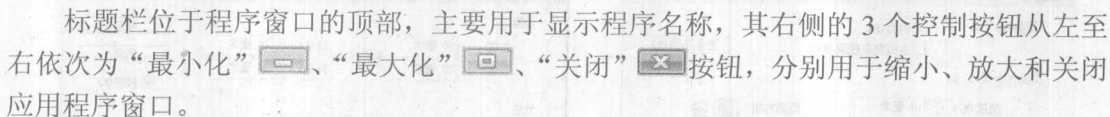 标题栏位于程序窗口的顶部，主要用于显示程序名称，其右侧的 3 个控制按钮从左至
右依次为“最小化”、“最大化”、“关闭”按钮，分别用于缩小、放大和关闭
应用程序窗口。